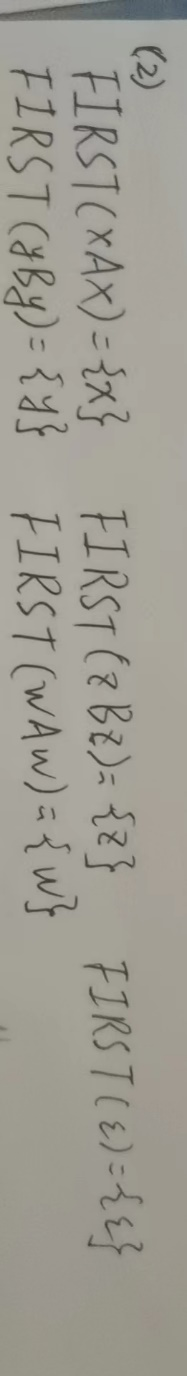 (2)
FIRST(xAx)={x} FIRST(zBz)={z} FIRST(ε)={ε}
FIRST(yBy)={y} FIRST(wAw)={w}